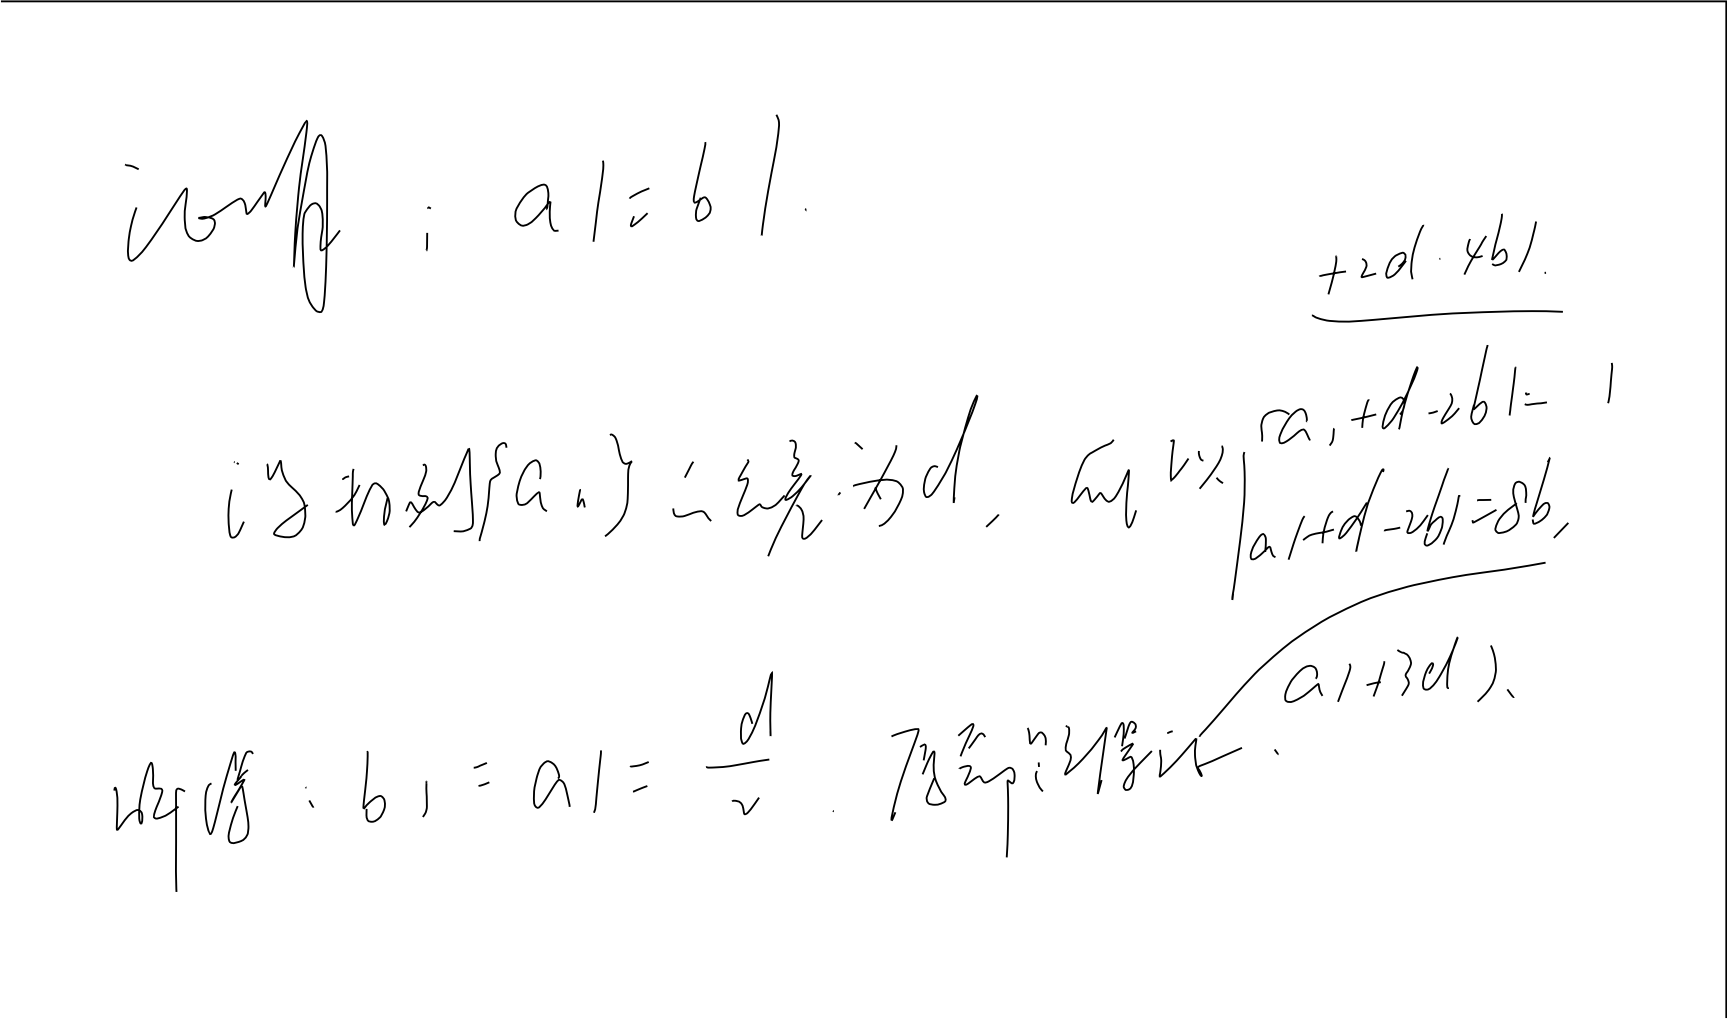 证明：a1=b1.
+2d·4b1.
设数列{an}公差为d，所以 a1+d-2b1= 1
a1+d-2b1=8b1
a1+3d)、
解得：b1=a1=d/2. 原命题得证.